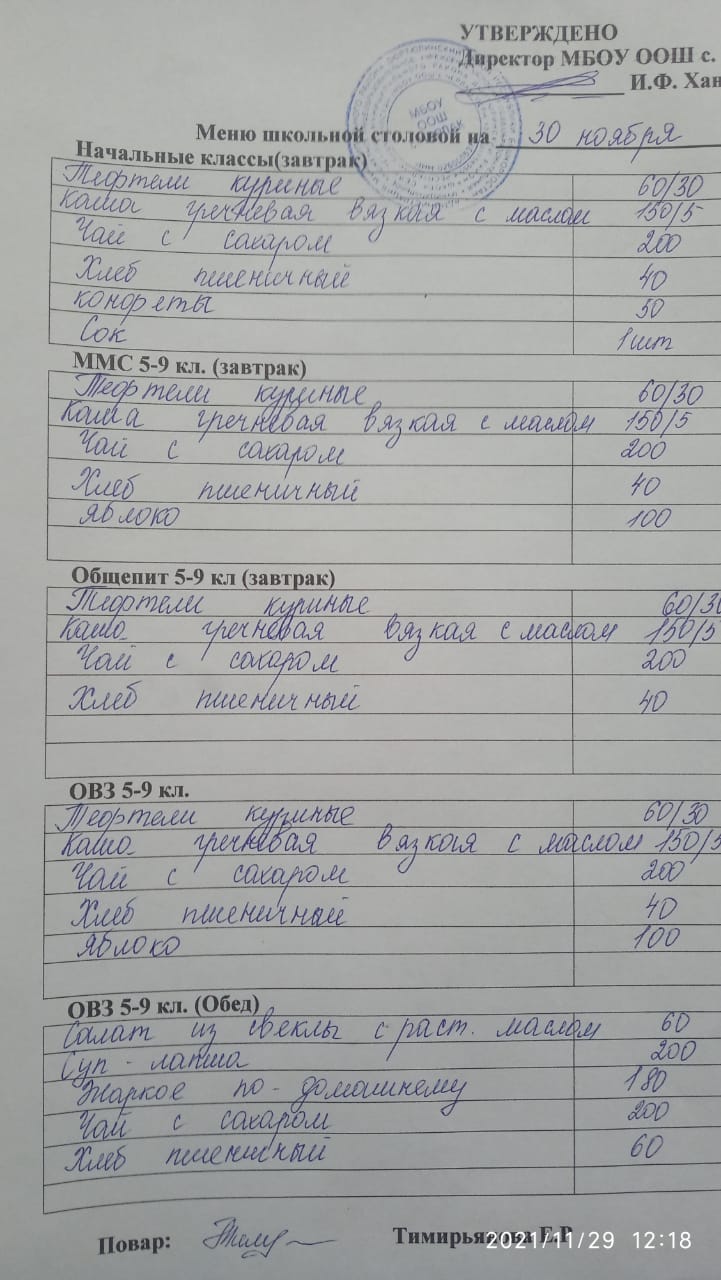 УТВЕРЖДЕНО
Директор МБОУ ООШ с.
И.Ф. Хан
МБОУ
ООШ
Меню школьной столовой на 30 ноября
Начальные классы(завтрак)
Тефтели куриные 60/30
Каша гречневая вязкая с маслом 150/5
Чай с сахаром 200
Хлеб пшеничный 40
конфеты 50
Сок 1шт
ММС 5-9 кл. (завтрак)
Тефтели куриные 60/30
Каша гречневая вязкая с маслом 150/5
Чай с сахаром 200
Хлеб пшеничный 40
яблоко 100
Общепит 5-9 кл (завтрак)
Тефтели куриные 60/30
Каша гречневая вязкая с маслом 150/5
Чай с сахаром 200
Хлеб пшеничный 40
ОВЗ 5-9 кл.
Тефтели куриные 60/30
Каша гречневая вязкая с маслом 150/5
Чай с сахаром 200
Хлеб пшеничный 40
яблоко 100
ОВЗ 5-9 кл. (Обед)
Салат из свеклы с раст. маслом 60
Суп - лапша 200
Жаркое по - домашнему 180
Чай с сахаром 200
Хлеб пшеничный 60
Повар: Тимирьянова Е.Р
2021/11/29 12:18